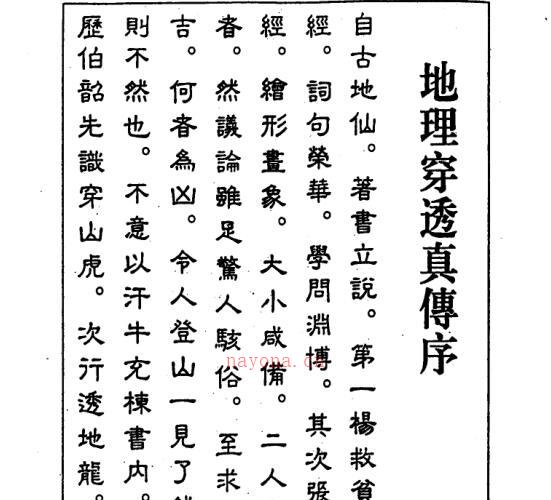 地理穿透真傳序
自古地仙。著書立說。第一楊救貧
經。詞句榮華。學問淵博。其次張
經。繪形畫象。大小咸備。二人
者。然議論雖足驚人駭俗。至求
吉。何者為凶。令人登山一見了
則不然也。不意以汗牛充棟書內。
歷伯韶先識穿山虎。次行透地龍。
nayona.cn